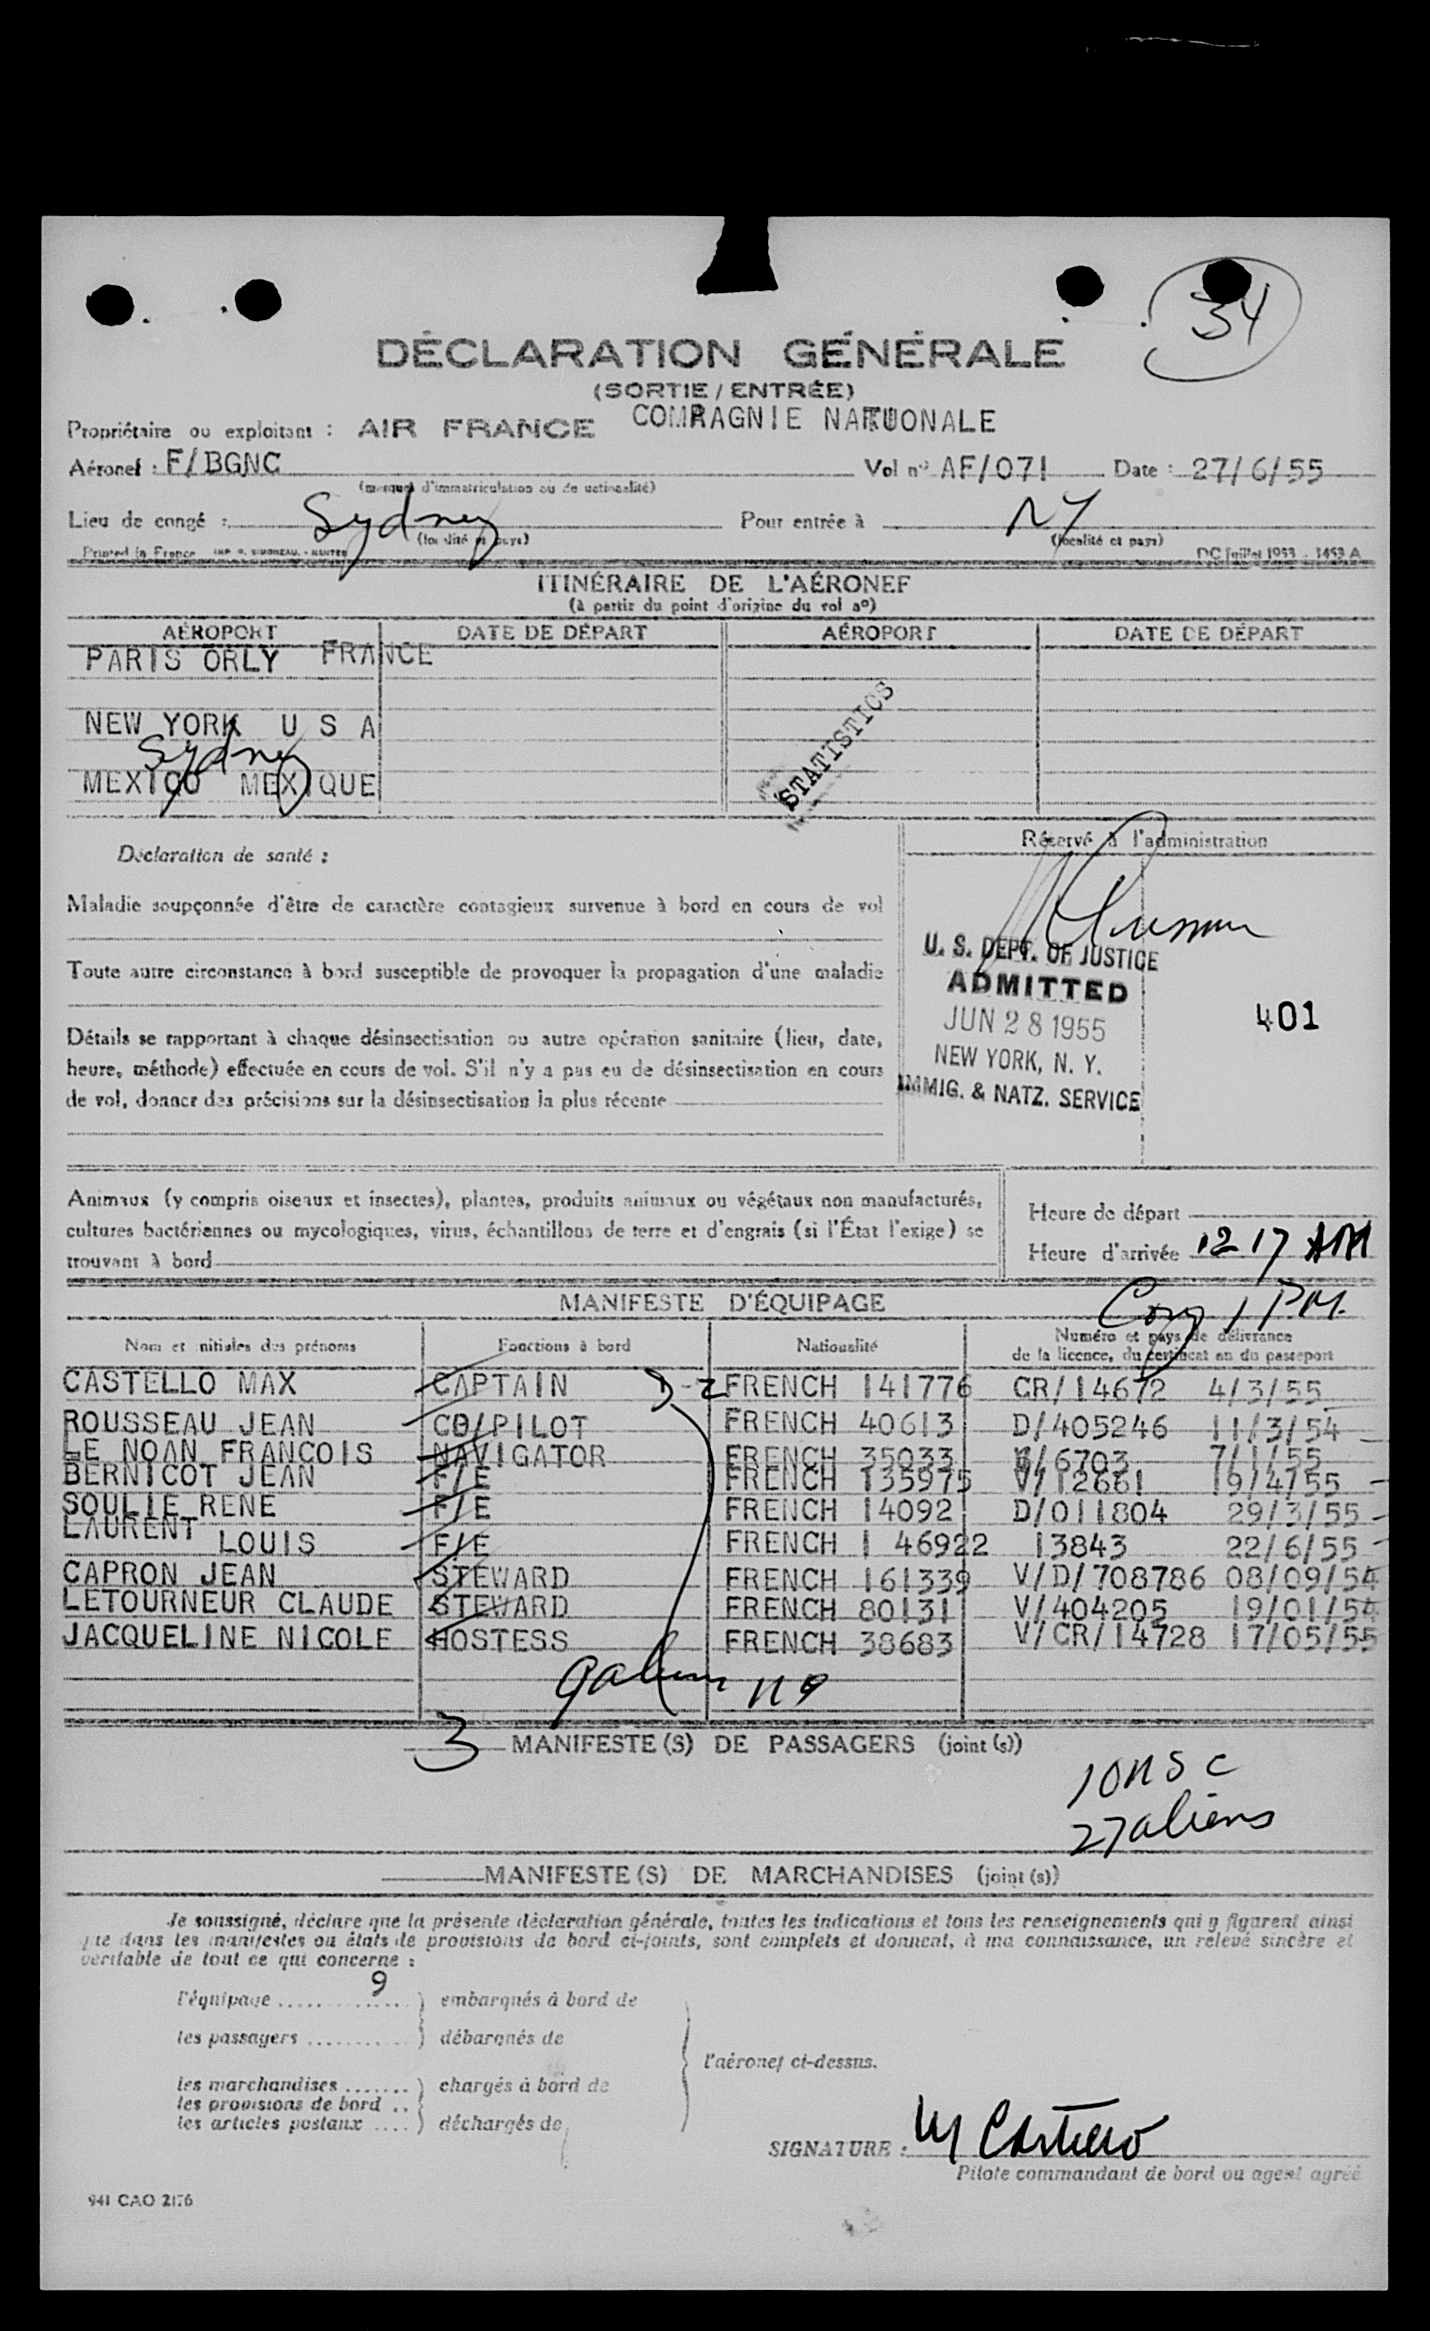 34
DÉCLARATION GÉNÉRALE
(SORTIE / ENTRÉE)
Propriétaire ou exploitant : AIR FRANCE COMPAGNIE NATIONALE
Aéronef : F/BGNC Vol nº AF/071 Date : 27/6/55
(marques d'immatriculation ou de nationalité)
Lieu de congé : Sydney Pour entrée à NY
(localité et pays) (localité et pays)
Printed in France IMP. G. SIMONEAU. - NANTES DC Juillet 1953 - 1453 A
ITINÉRAIRE DE L'AÉRONEF
(à partir du point d'origine du vol nº)
AÉROPORT DATE DE DÉPART AÉROPORT DATE DE DÉPART
PARIS ORLY FRANCE
NEW YORK U S A
Sydney
MEXICO MEXIQUE
STATISTICS
Déclaration de santé :
Réservé à l'administration
Maladie soupçonnée d'être de caractère contagieux survenue à bord en cours de vol
Toute autre circonstance à bord susceptible de provoquer la propagation d'une maladie
Détails se rapportant à chaque désinsectisation ou autre opération sanitaire (lieu, date,
heure, méthode) effectuée en cours de vol. S'il n'y a pas eu de désinsectisation en cours
de vol, donner des précisions sur la désinsectisation la plus récente
U. S. DEPT. OF JUSTICE
ADMITTED
JUN 28 1955
NEW YORK, N. Y.
IMMIG. & NATZ. SERVICE
401
Animaux (y compris oiseaux et insectes), plantes, produits animaux ou végétaux non manufacturés,
cultures bactériennes ou mycologiques, virus, échantillons de terre et d'engrais (si l'État l'exige) se
trouvant à bord
Heure de départ
Heure d'arrivée 12 17 AM
MANIFESTE D'ÉQUIPAGE
1 PM.
Nom et initiales des prénoms Fonctions à bord Nationalité Numéro et pays de délivrance
de la licence, du certificat ou du passeport
CASTELLO MAX CAPTAIN D-2 FRENCH 141776 CR/14672 4/3/55
ROUSSEAU JEAN CO/PILOT FRENCH 40613 D/405246 11/3/54
LE NOAN FRANCOIS NAVIGATOR FRENCH 35033 B/6703 7/1/55
BERNICOT JEAN F/E FRENCH 135975 V/12661 19/4/55
SOULIE RENE F/E FRENCH 14092 D/011804 29/3/55
LAURENT LOUIS F/E FRENCH 1 46922 13843 22/6/55
CAPRON JEAN STEWARD FRENCH 161339 V/D/708786 08/09/54
LETOURNEUR CLAUDE STEWARD FRENCH 80131 V/404205 19/01/54
JACQUELINE NICOLE HOSTESS FRENCH 38683 V/CR/14728 17/05/55
3 MANIFESTE (S) DE PASSAGERS (joint (s))
10 USC
27 aliens
MANIFESTE (S) DE MARCHANDISES (joint (s))
Je soussigné, déclare que la présente déclaration générale, toutes les indications et tous les renseignements qui y figurent ainsi
que dans les manifestes ou états de provisions de bord ci-joints, sont complets et donnent, à ma connaissance, un relevé sincère et
véritable de tout ce qui concerne :
l'équipage .............. 9 ) embarqués à bord de
les passagers ........... ) débarqués de
l'aéronef ci-dessus.
les marchandises ....... ) chargés à bord de
les provisions de bord ..
les articles postaux .... ) déchargés de
SIGNATURE : M Castello
Pilote commandant de bord ou agent agréé
941 CAO 2176